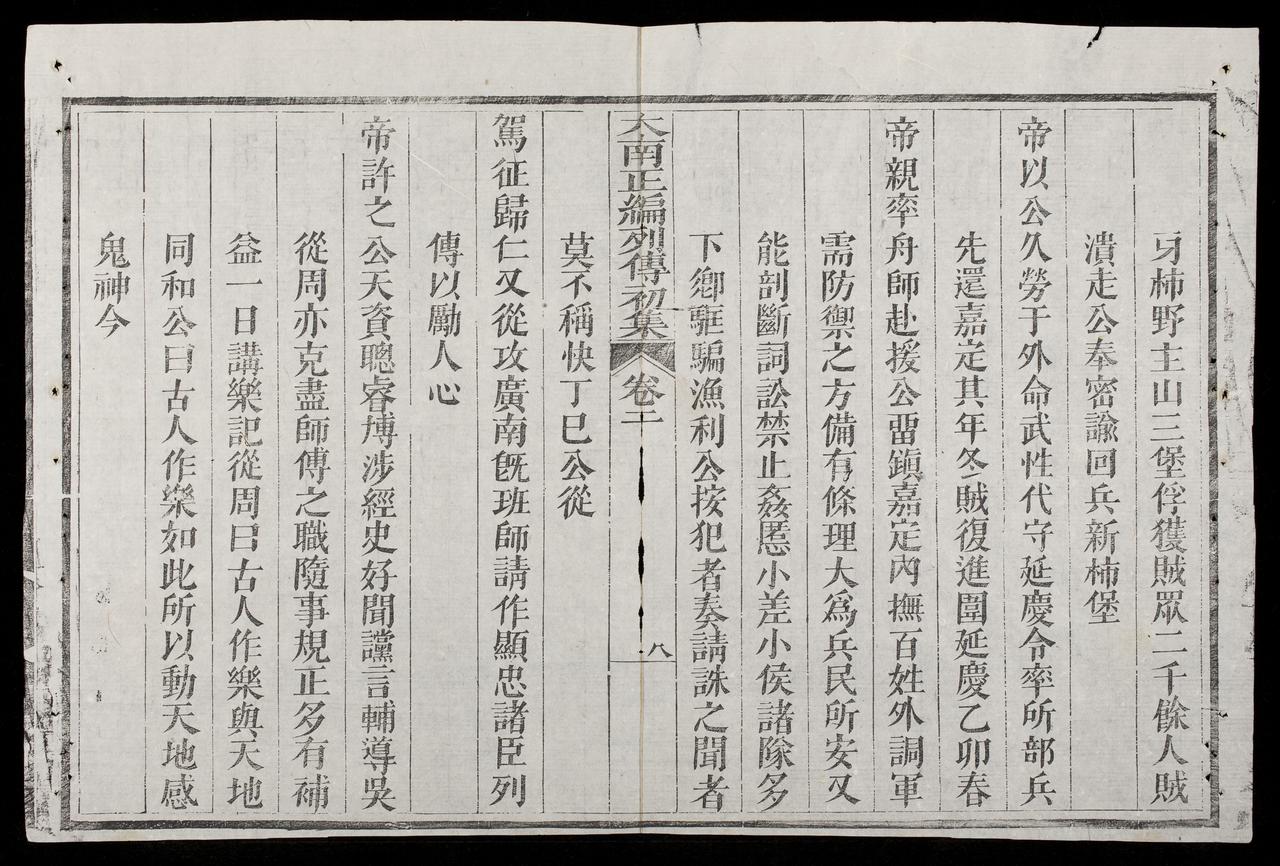 牙柿野主山三堡俘獲賊眾二千餘人賊
潰走公奉密諭回兵新柿堡
帝以公久勞于外命武性代守延慶令率所部兵
先還嘉定其年冬賊復進圍延慶乙卯春
帝親率舟師赴援公畱鎮嘉定內撫百姓外調軍
需防禦之方備有條理大爲兵民所安又
能剖斷詞訟禁止姦慝小差小侯諸隊多
下鄉駐騙漁利公按犯者奏請誅之聞者
大南正編列傳初集 卷二 八
莫不稱快丁巳公從
駕征歸仁又從攻廣南旣班師請作顯忠諸臣列
傳以勵人心
帝許之公天資聰睿博涉經史好聞讜言輔導吳
從周亦克盡師傅之職隨事規正多有補
益一日講樂記從周曰古人作樂與天地
同和公曰古人作樂如此所以動天地感
鬼神今